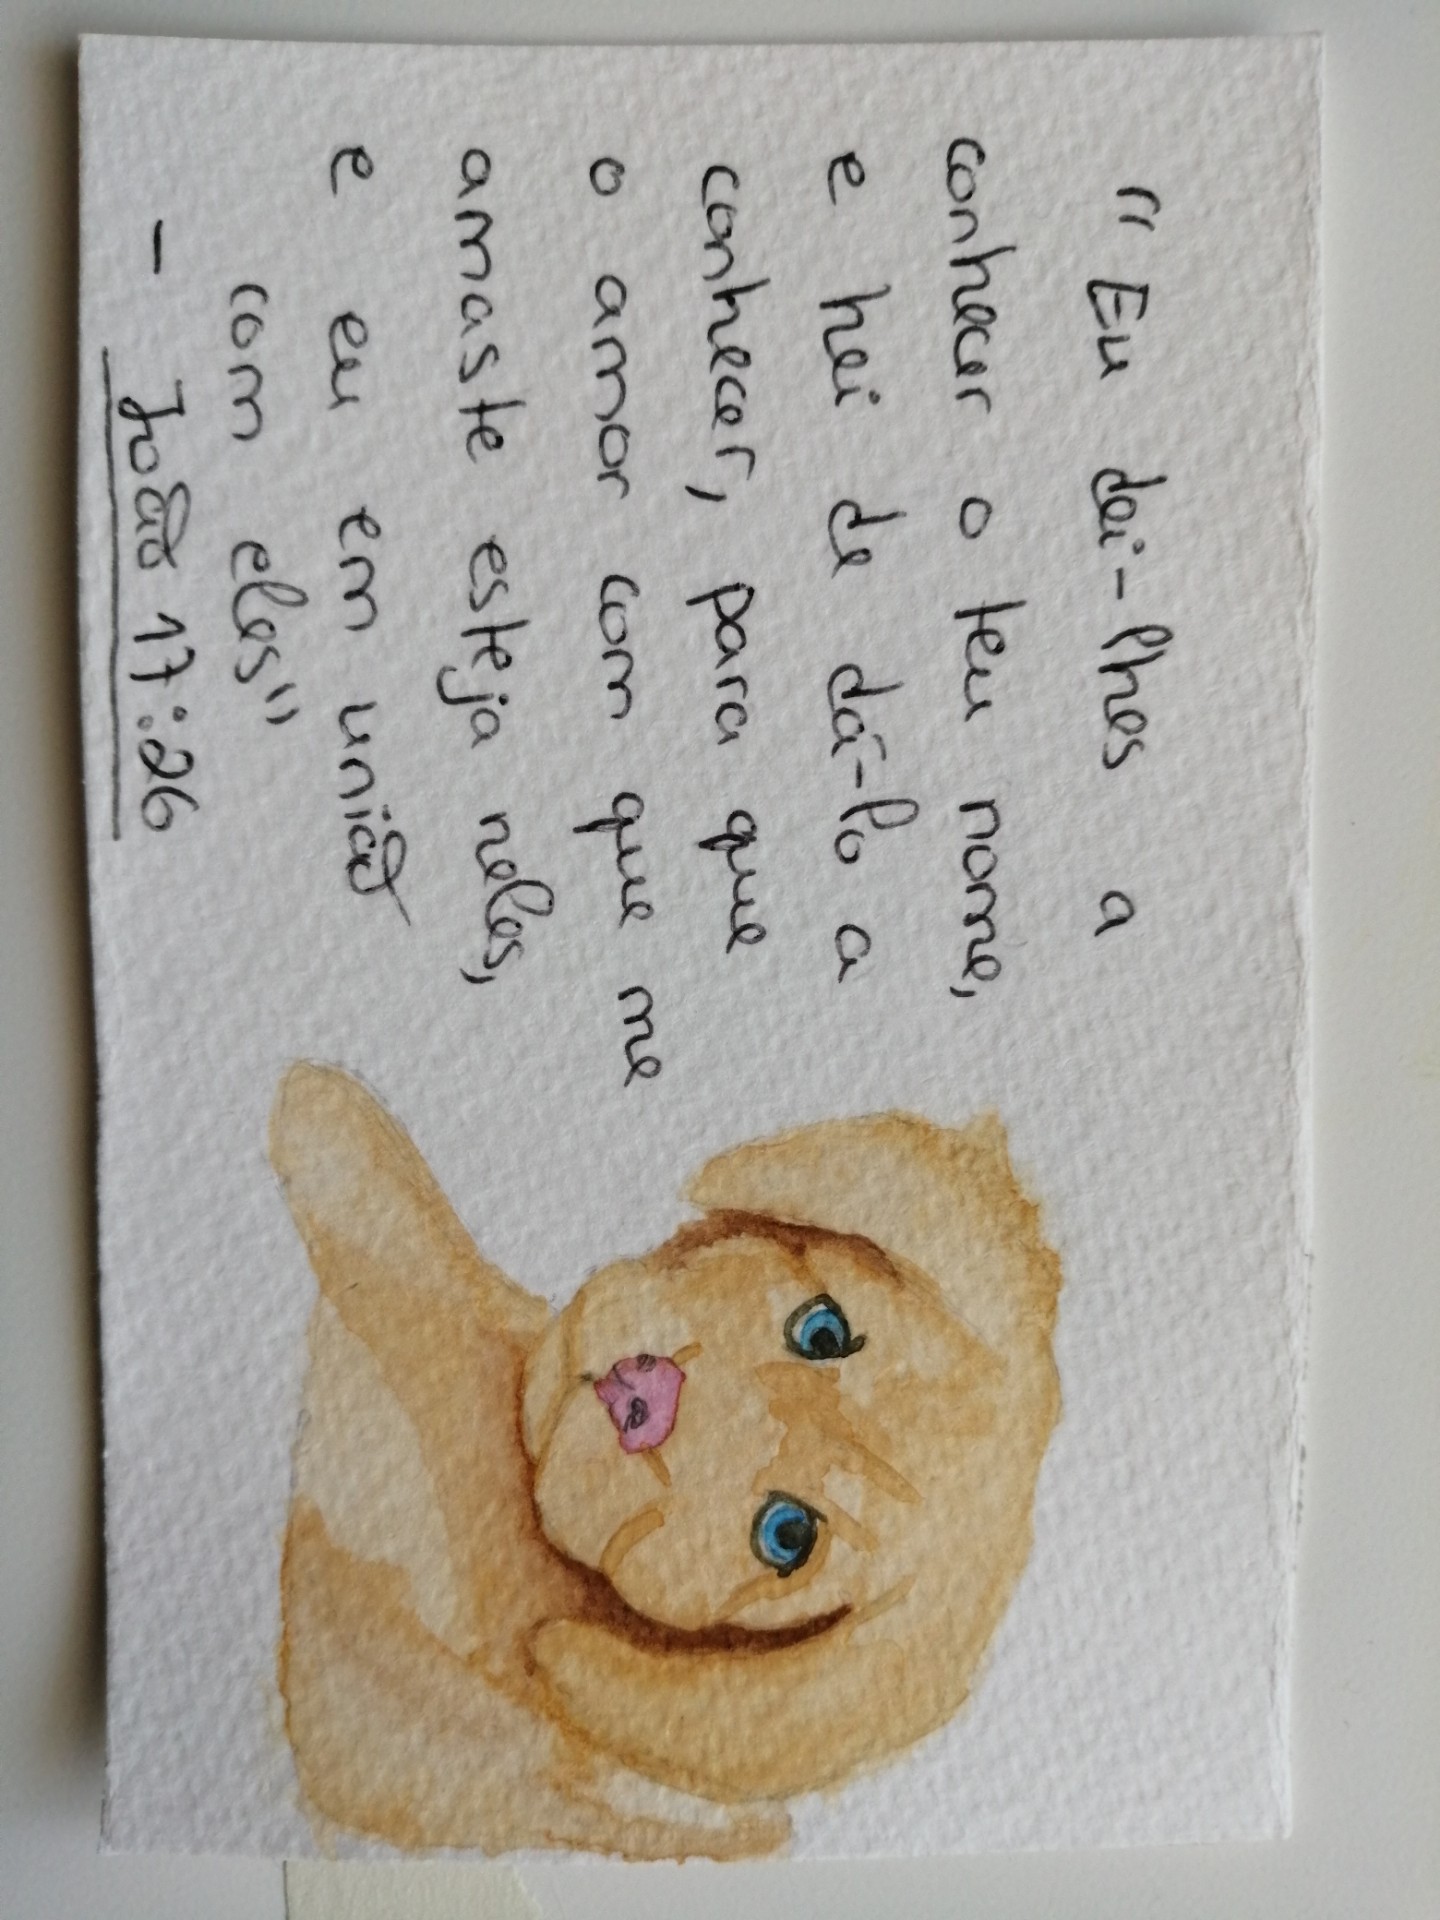 “Eu dei-lhes a
conhecer o teu nome,
e hei de dá-lo a
conhecer, para que
o amor com que me
amaste esteja neles,
e eu em união
com eles”
- João 17:26